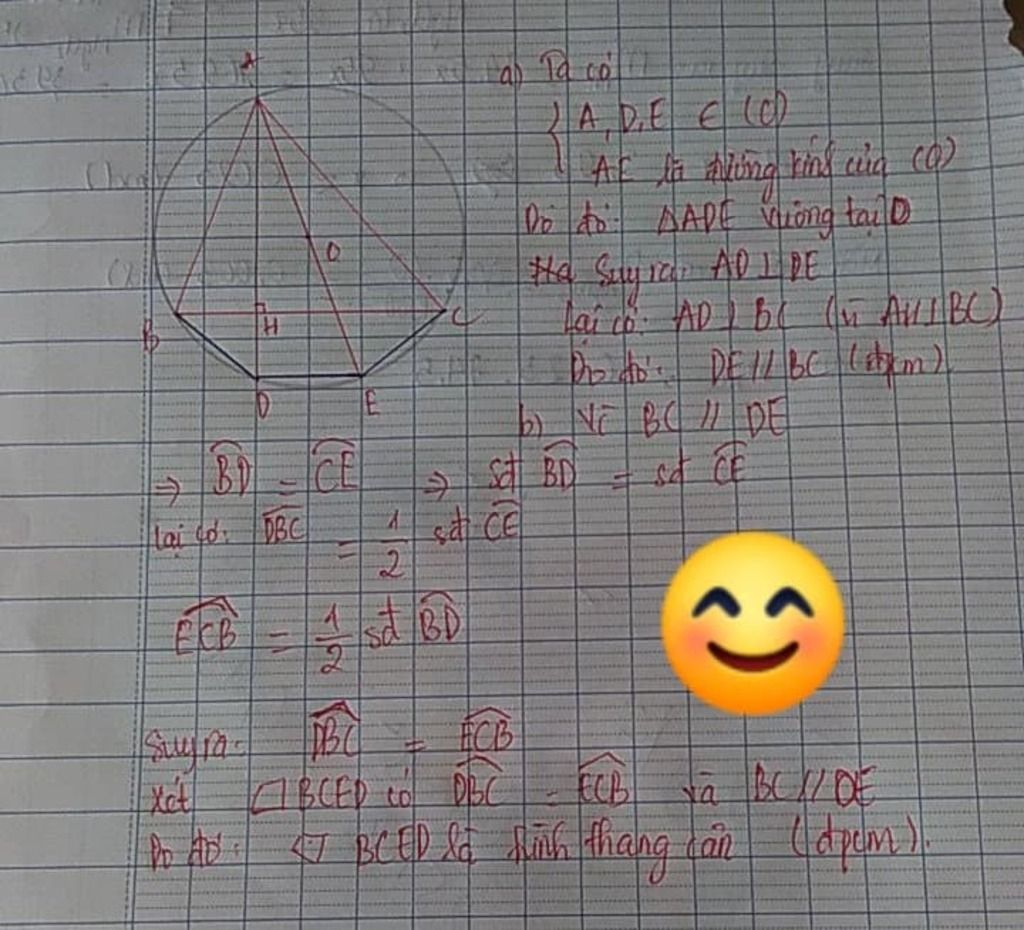 A
O
B
H
C
D
E
a) Ta có
{ A, D, E ∈ (O)
AE là đường kính của (O)
Do đó: ΔADE vuông tại D
Suy ra: AD ⊥ DE
Lại có: AD ⊥ BC (vì AH ⊥ BC)
Do đó: DE // BC (đpcm)
b) Vì BC // DE
⇒ \overset{⌢}{BD} = \overset{⌢}{CE} ⇒ sđ \overset{⌢}{BD} = sđ \overset{⌢}{CE}
Lại có: \widehat{DBC} = 1/2 sđ \overset{⌢}{CE}
\widehat{ECB} = 1/2 sđ \overset{⌢}{BD}
Suy ra: \widehat{DBC} = \widehat{ECB}
Xét □BCED có \widehat{DBC} = \widehat{ECB} và BC // DE
Do đó: □ BCED là hình thang cân (đpcm).